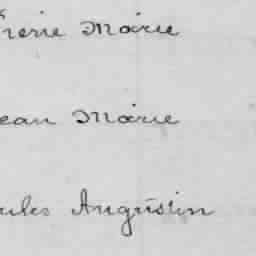 Marie
ean Marie
ules Augustin